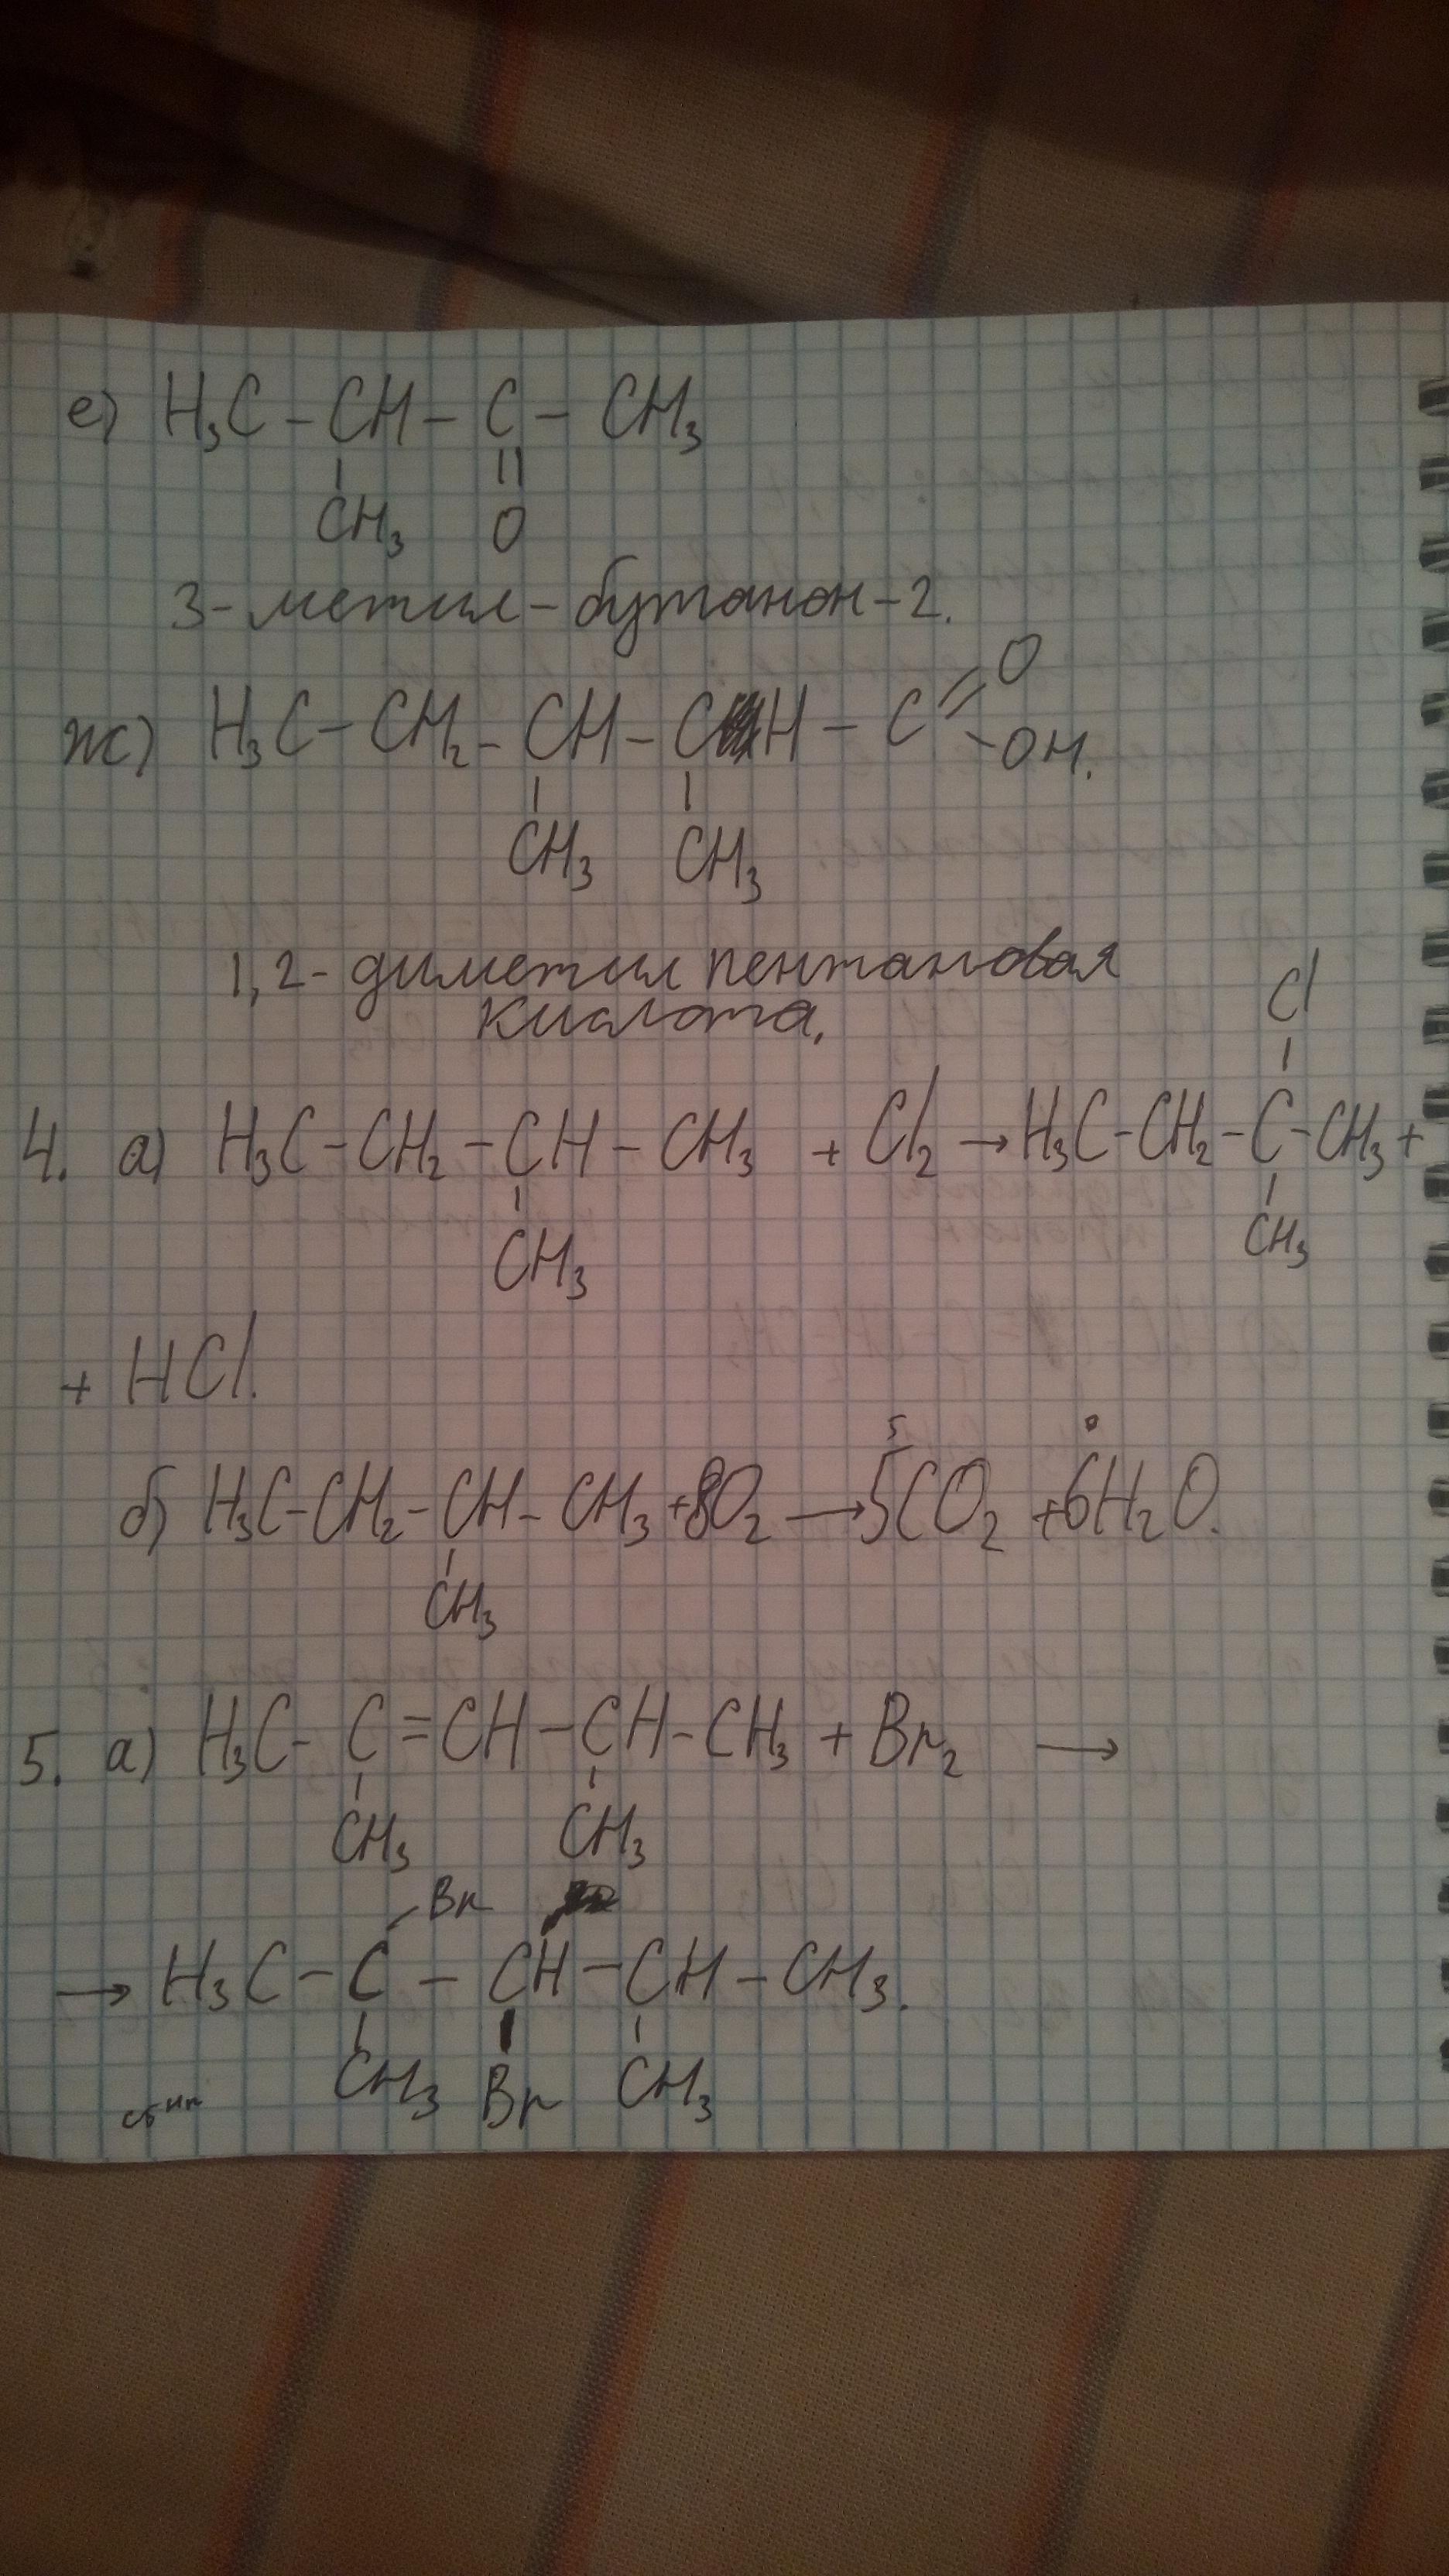 е) H₃C – CH – C – CH₃
CH₃ O
3-метил-бутанон-2.
ж) H₃C – CH₂ – CH – CH – C = O
– OH.
CH₃ CH₃
1,2-диметил пентановая
кислота.
Cl
4. а) H₃C – CH₂ – CH – CH₃ + Cl₂ → H₃C – CH₂ – C – CH₃ +
CH₃ CH₃
+ HCl.
5
б) H₃C – CH₂ – CH – CH₃ + 8O₂ → 5CO₂ + 6H₂O.
CH₃
5. а) H₃C – C = CH – CH – CH₃ + Br₂ →
CH₃ CH₃
Br
→ H₃C – C – CH – CH – CH₃.
CH₃ Br CH₃